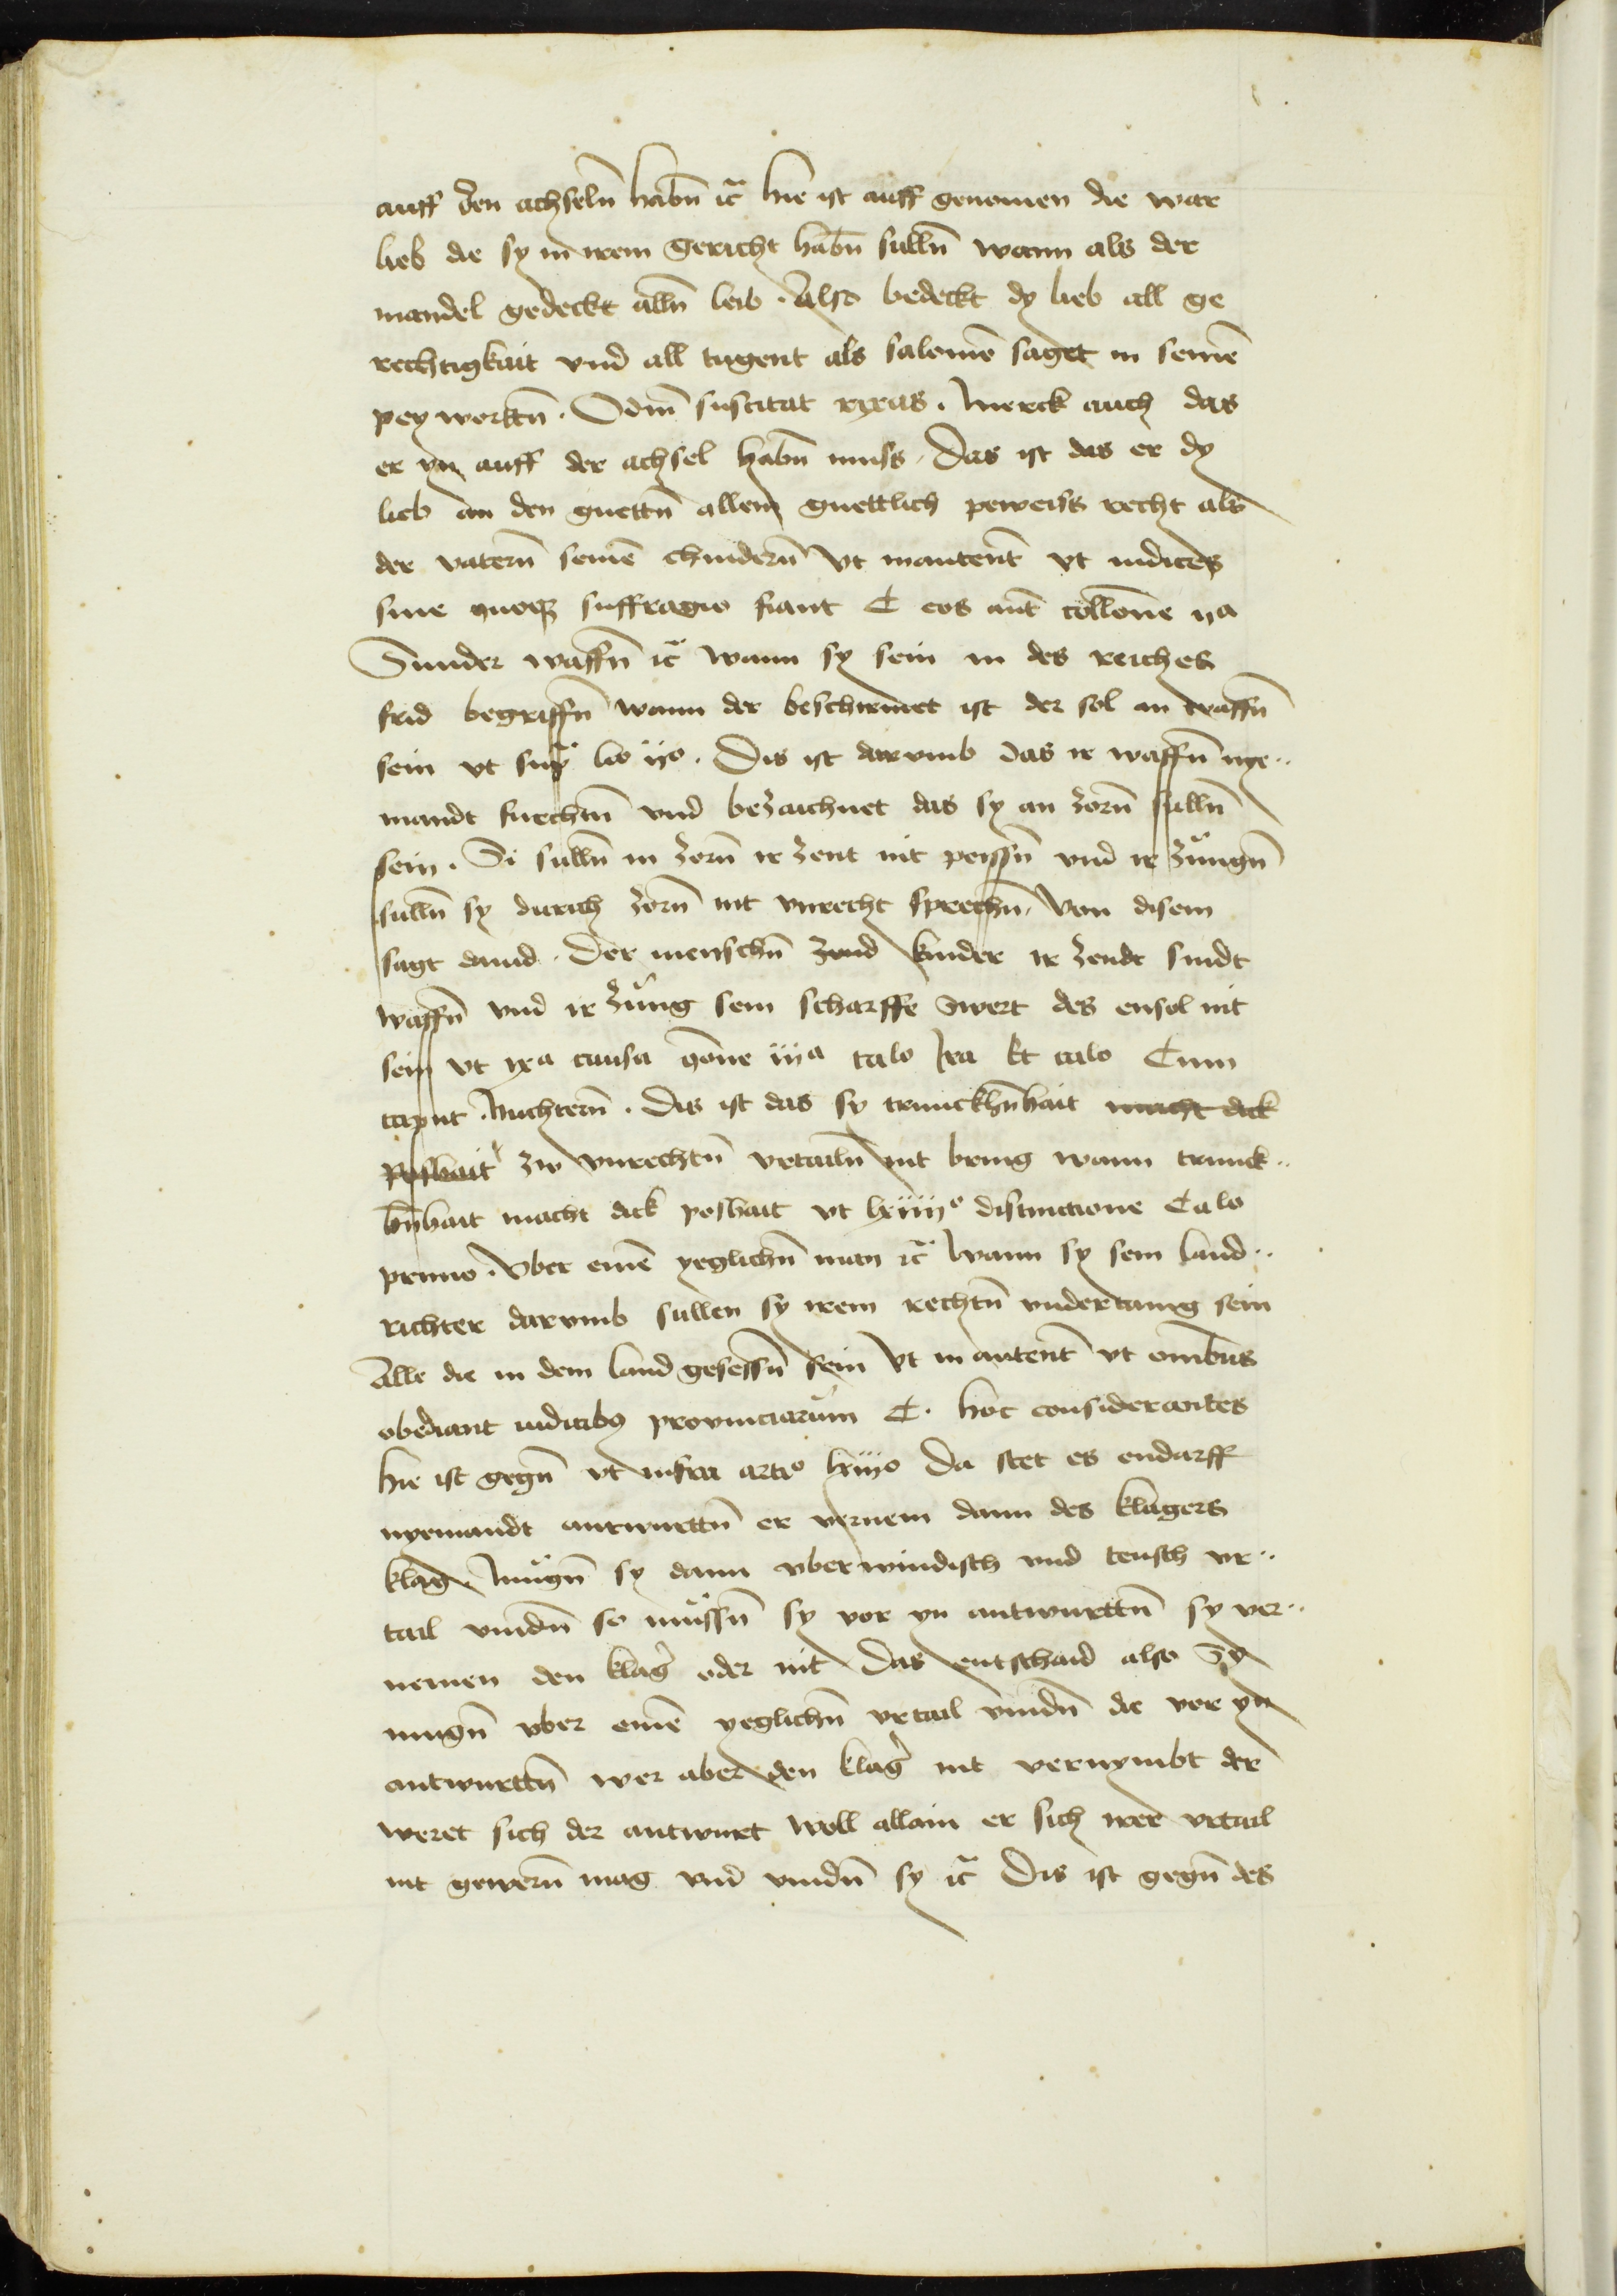 auff den achseln̄ habn̄ ꝛc̃ hie ist auff genomen die war
lieb die sy in irem Gericht habn̄ sulln̄ wann als der
mandel gedeckt alln̄ leib . Also bedeckt dy lieb all ge
rechtigkait vnd all tugent als salomō saget in seinē
pey wortn̄ . Odiū suscitat rixas . Merck auch das
er yn auff der achsel habn̄ muss . Das ist das er dy
lieb an den guettn̄ allein guettlich peweiss recht als
der vatern̄ seinē chindern̄ Vt inautent̄ vt iudices
sine quoq suffragio fiant C eos aut̄ collōne ija
Sunder waffn̄ ꝛc̃ Wann sy sein in des reiches
frid begriffn̄ wann der beschirmet ist der sol an waffn̄
sein vt sup̃ lio ijo . Dis ist darvmb das ir waffn̄ nye¨
mandt fuechtn̄ vnd bezaichnet das sy an zorn̄ sulln̄
sein . Si sulln̄ in zorn̄ ir zent nit peissn̄ vnd ir zůngn̄
sulln̄ sy durich zorn̄ nit vnrecht sprechn̄ . Von disem
sagt dauid . Der menschn̄ zend kinder ir zendt sindt
waffn̄ vnd ir zůng sein scharffe swert des ensol nit
sein vt xja causa qōne iija calo Ira Et calo Cum
caput . Nuchtern̄ . Dis ist das sy trunckhn̄hait macht dick
poshait zw vnrechtn̄ vrtailn̄ nit bring wann trunck¨
hn̄hait macht dick poshait vt lxiiijo distinctione Calo
primo . Vber einē yeglichn̄ man ꝛc̃ Wann sy sein land¨
richter darvmb sullen sy irem rechtn̄ vndertanig sein
Alle die in dem land gesessn̄ sein Vt in autent̄ vt omībus
obediant iudicibꝫ prouinciarům C . hoc considerantes
hie ist gegn̄ vt infra arto lxiijo Da stet es endarff
nyemandt antwurttn̄ er vernem dann des klagers
klag . Můgn̄ sy dann vber windisch vnd teusch vr¨
tail vindn̄ so můssn̄ sy vor yn antwurttn̄ sy ver¨
nemen den klag̉ oder nit Das entschaid also Sy
mugn̄ vber einē yeglichn̄ vrtail vindn̄ die vor yn
antwurttn̄ wer aber den klag̉ nit vernymbt der
weret sich der antwurt woll allain er sich irer vrtail
nit gewern̄ mag vnd vindn̄ sy ꝛc̃ Dis ist gegn̄ des